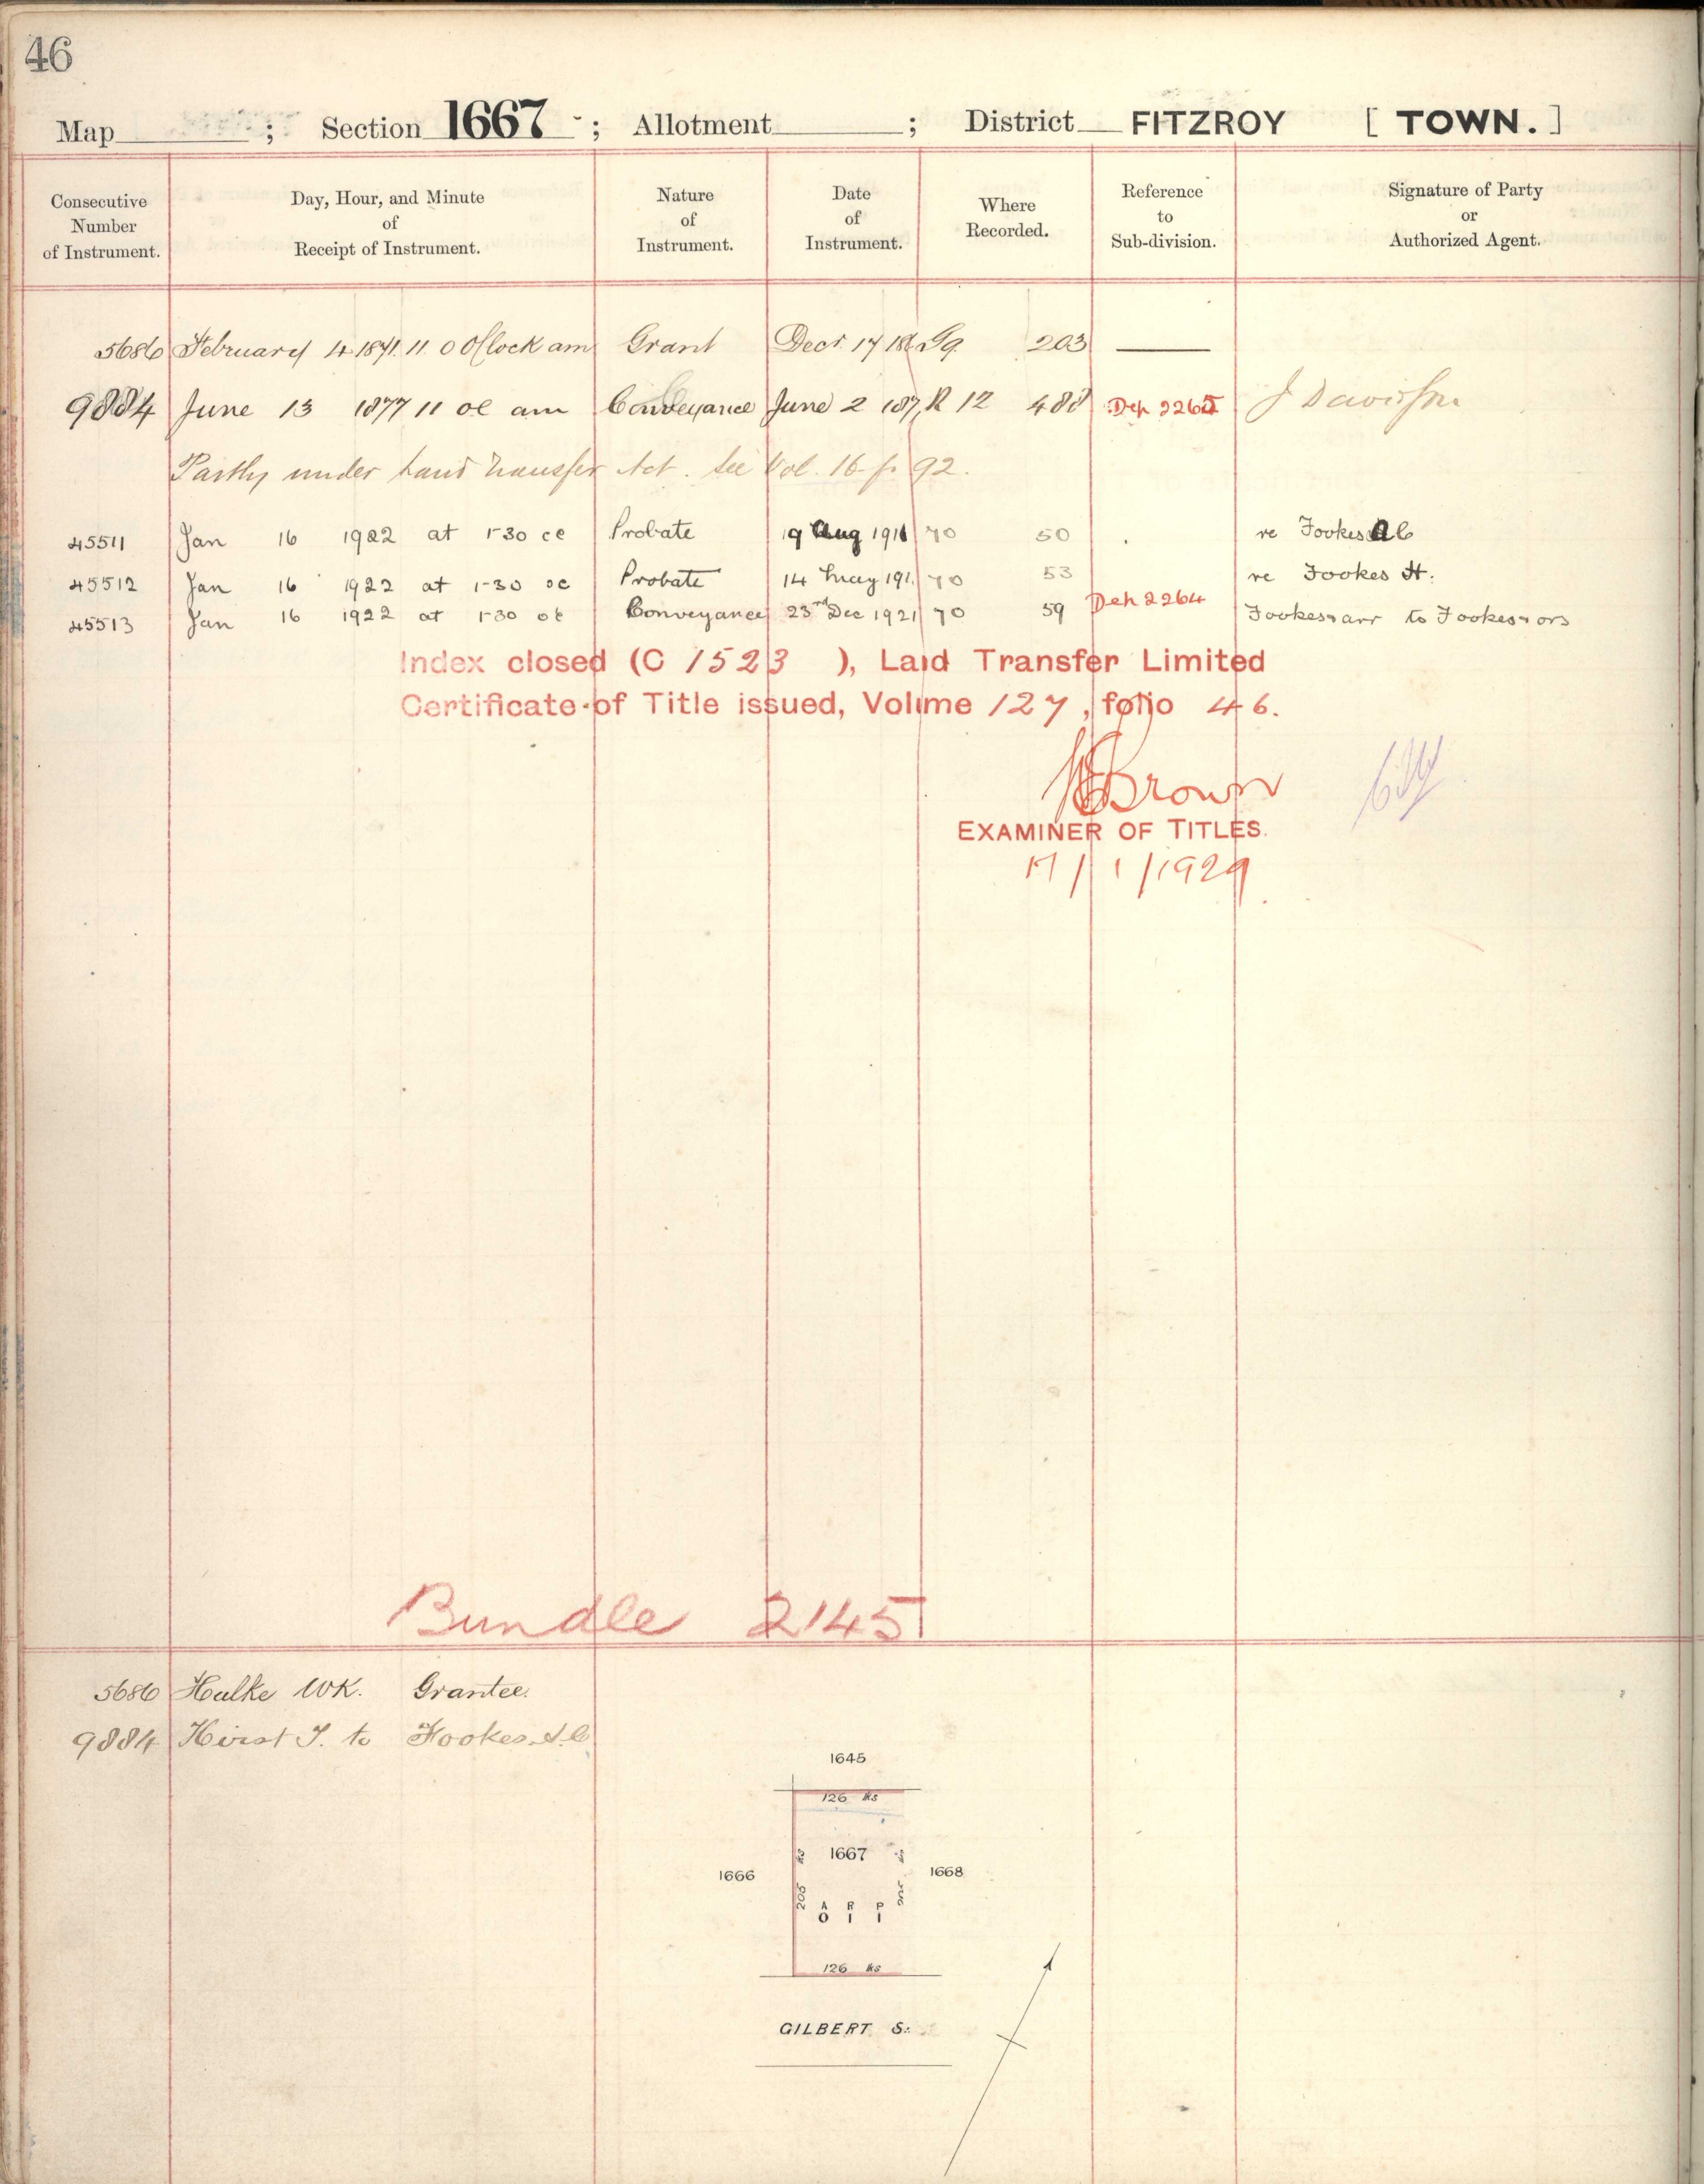 46
Map ; Section 1667 ; Allotment ; District FITZROY [ TOWN. ]
Consecutive Number of Instrument.
Day, Hour, and Minute of Receipt of Instrument.
Nature of Instrument.
Date of Instrument.
Where Recorded.
Reference to Sub-division.
Signature of Party or Authorized Agent.
5686 February 4 1871. 11 0 Oclock am Grant Decr. 17 203
9884 June 13 1877 11 oc am Conveyance June 2 187 R 12 488 Deh J Davidson
Partly under Land Transfer Act. See Vol. 16 fo 92.
45511 Jan 16 1922 at 1-30 oc Probate 19 Aug 191 70 50 re Fookes A C
45512 Jan 16 1922 at 1-30 oc Probate 14 May 191 70 53 re Fookes H.
45513 Jan 16 1922 at 1-30 oc Conveyance 23rd Dec 1921 70 59 Deh 2264 Fookes & anr to Fookes & ors
Index closed (C 1523 ), Land Transfer Limited
Certificate of Title issued, Volume 127, folio 46.
Brown
EXAMINER OF TITLES.
17/1/1929
Bundle 2145
5686 Hulke WK. Grantee.
9884 Hirst T. to Fookes A.C
1645
126 lks
1667
1666
1668
A R P
0 1 1
126 lks
GILBERT S: